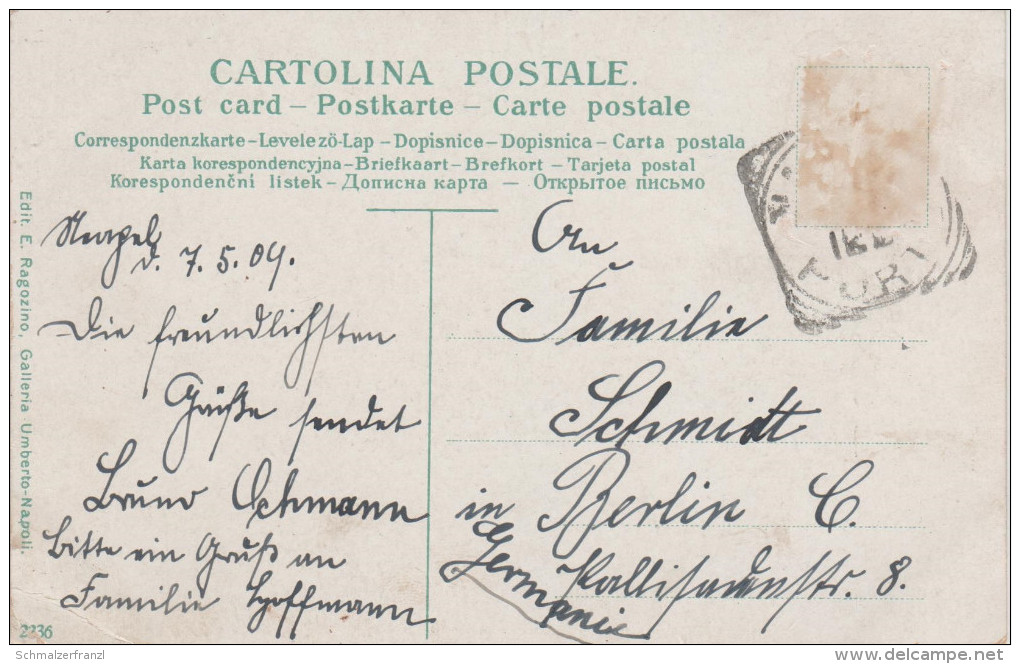 CARTOLINA POSTALE.
Post card – Postkarte – Carte postale
Correspondenzkarte - Levelező-Lap - Dopisnice - Dopisnica - Carta postala
Karta korespondencyjna - Briefkaart - Brefkort - Tarjeta postal
Korespondenční lístek - Дописна карта — Открытое письмо
Neapel
d. 7.5.09.
Die freundlichsten
Grüße sendet
Bruno Ochmann
Bitte ein Gruß an
Familie Hoffmann
An
Familie
Schmidt
in Berlin C.
Wallisadenstr. 8.
Germania
Edit. E. Ragozino, Galleria Umberto-Napoli.
2236
© Schmalzerfranzl
Schmalzerfranzl